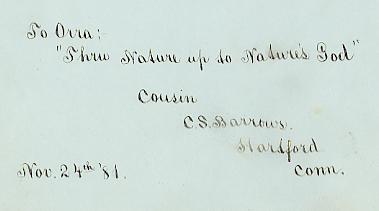 To Orra:
"Thru Nature up to Nature's God"
Cousin
C.S. Barrows.
Hartford
Conn.
Nov. 24th '81.